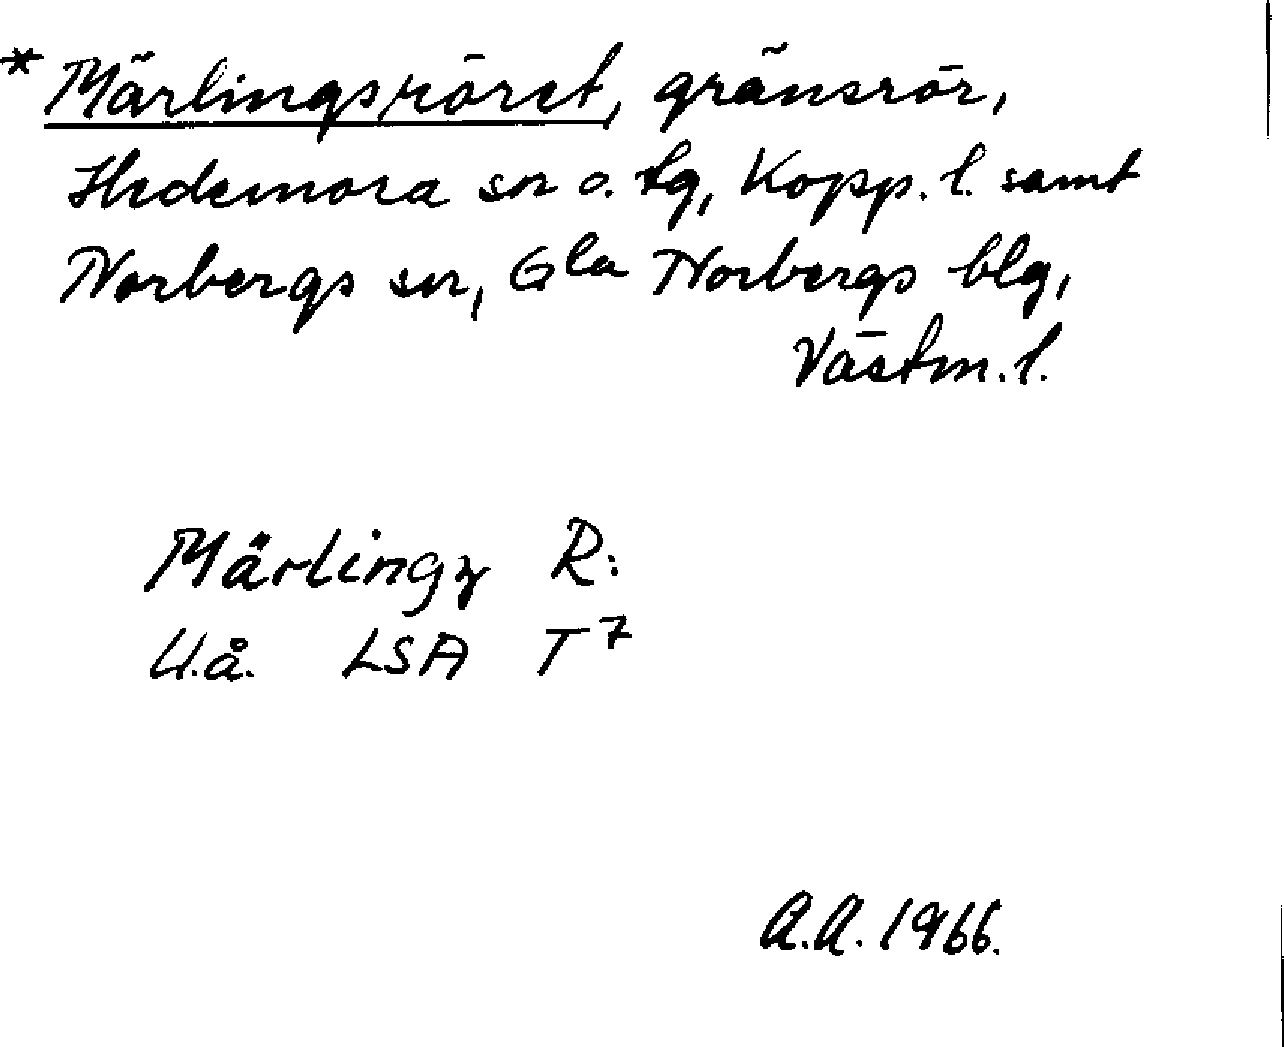 * Märlingsröret, gränsrör,
Hedemora sn o. tg, Kopp. l. samt
Norbergs sn, Gla Norbergs blg,
Västm. l.
Märlingz R:
U.å. LSA T7
A.A. 1966.